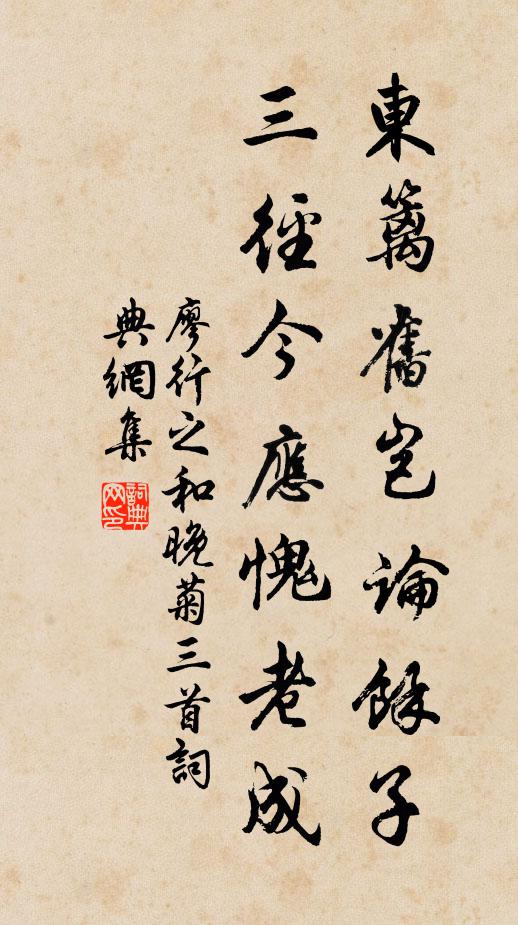 東籬舊豈論餘子
三徑今應愧老成
廖行之和晚菊三首詞
典網集
詞典
网印